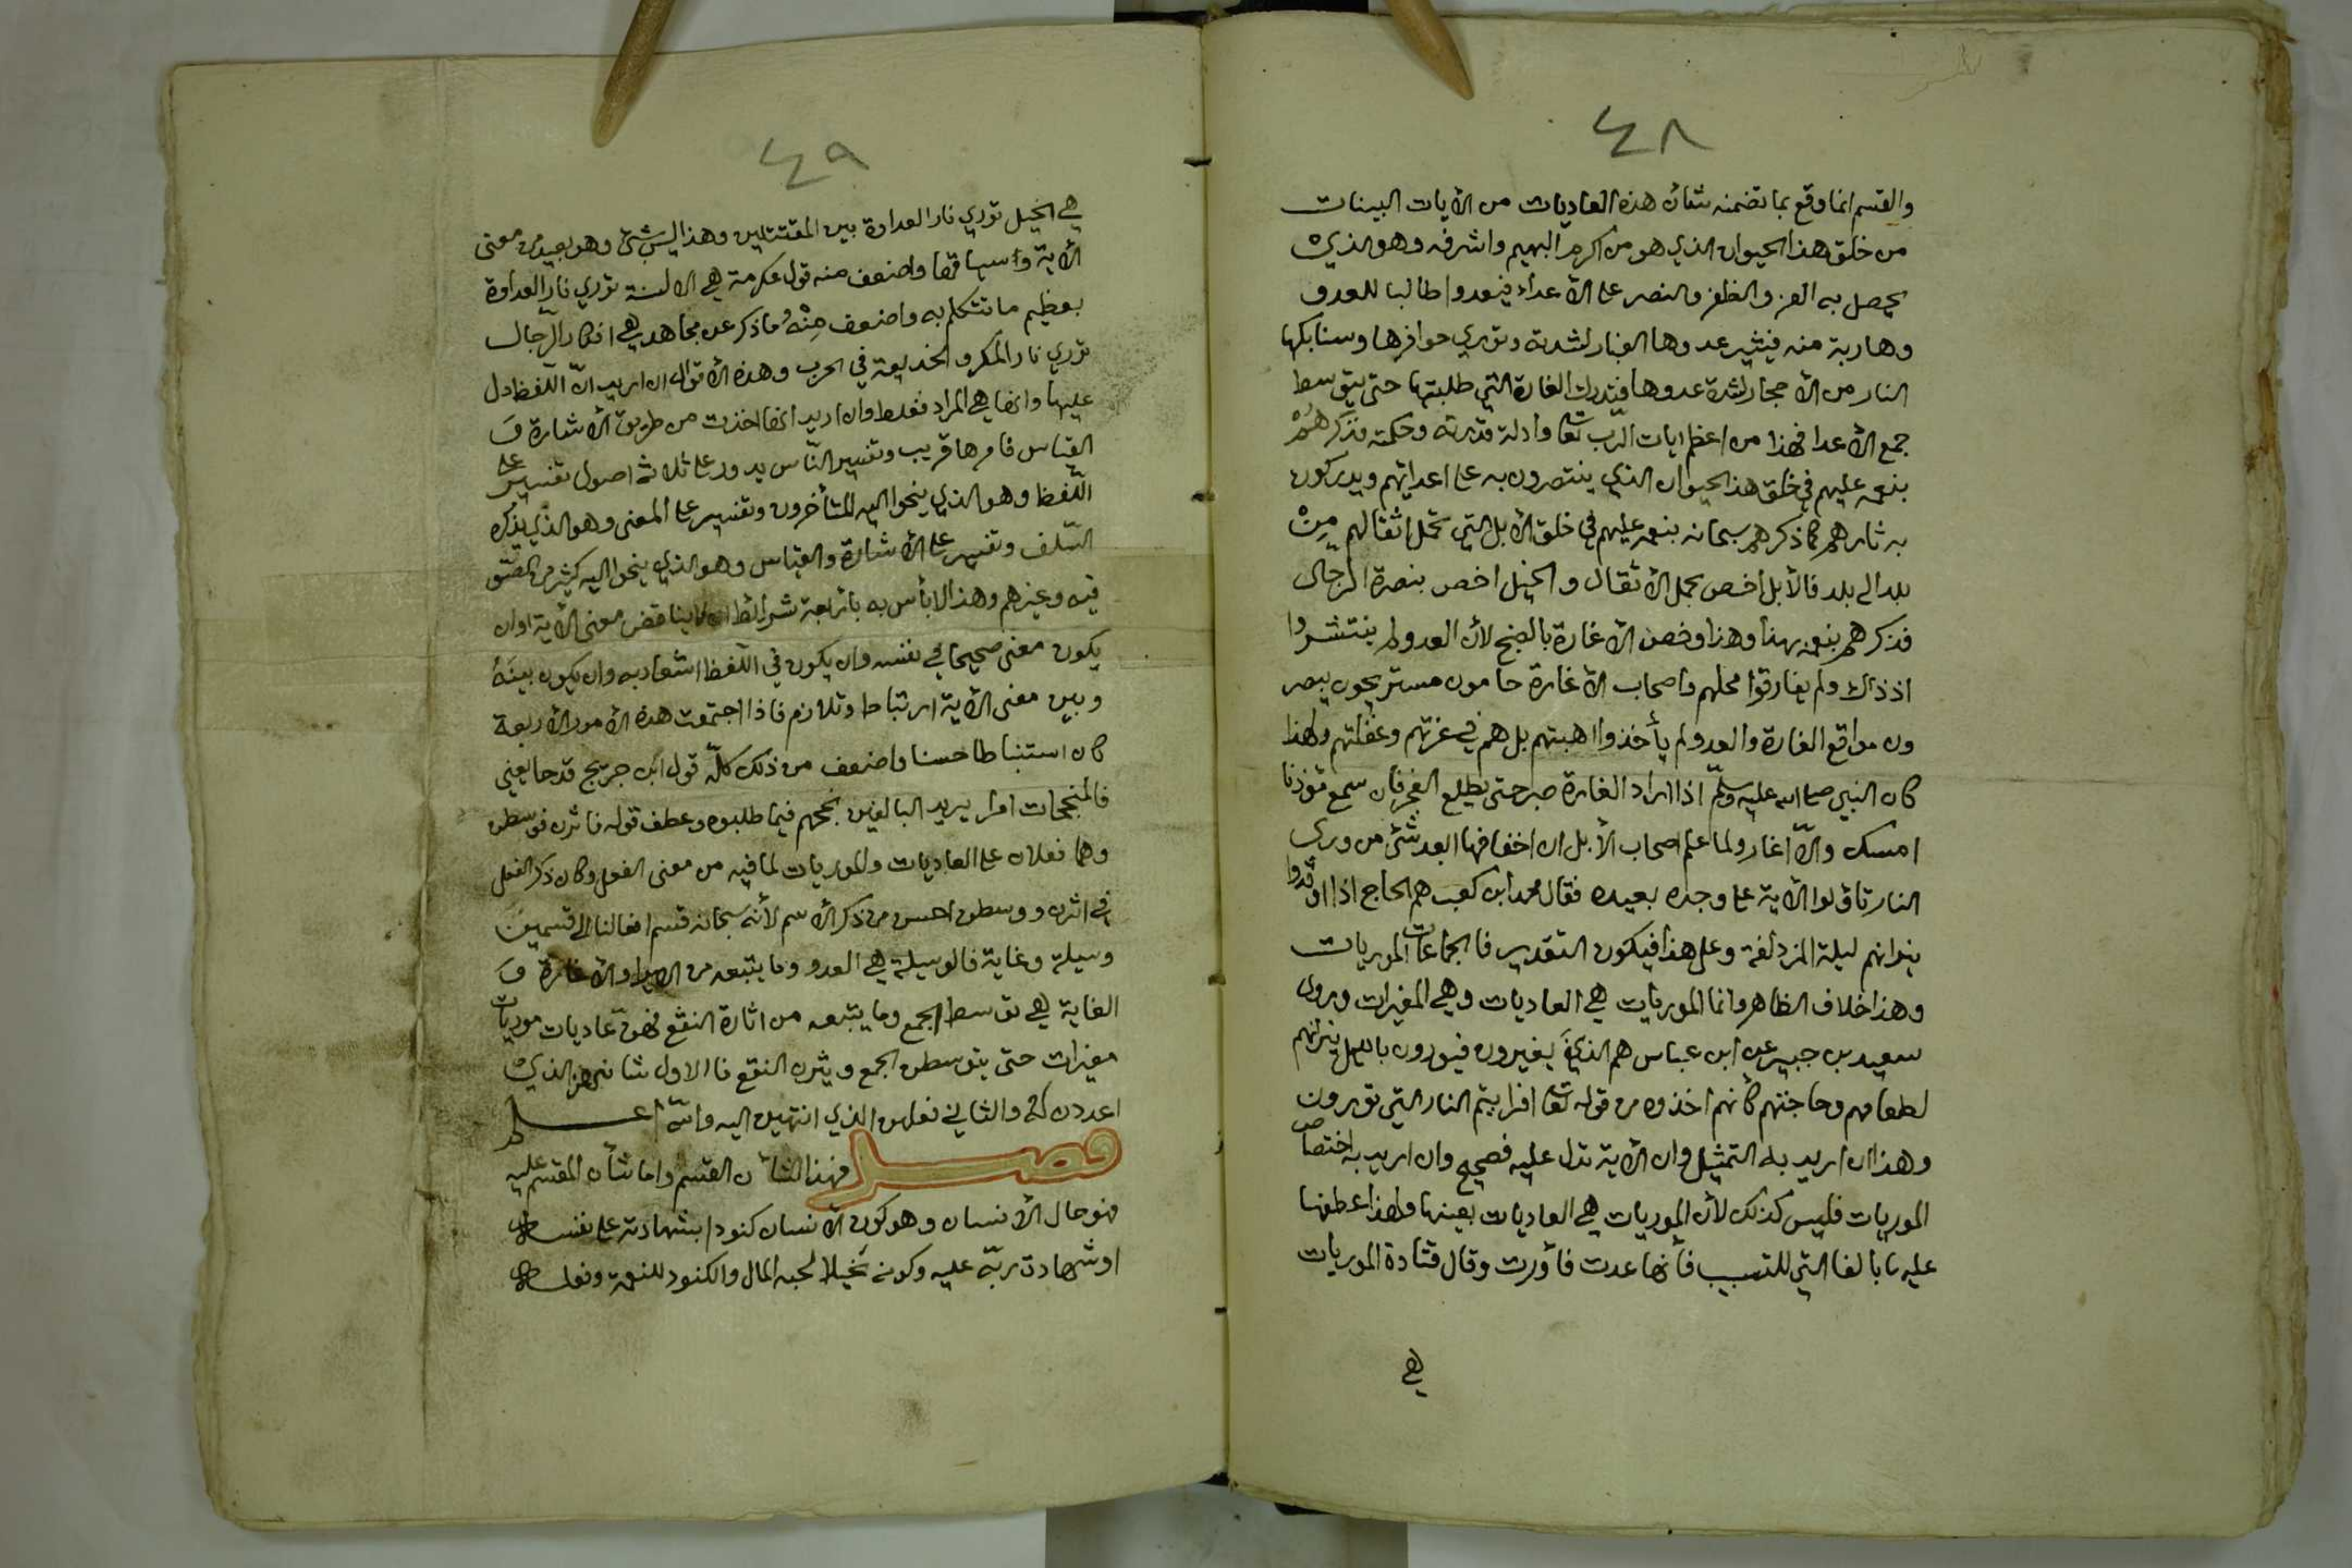 ٤٨
والقسم انما وقع بما تضمنه شأن هذه العاديات من الأيات البينات
من خلق هذا الحيوان الذي هو من اكرم البهيم واشرفه وهو الذي
يحصل به العز والظفر والنصر على الأعداء فيعدوا طالبا للعدو
وهاربة منه فيثير عدوها الغبار لشدته وتوري حوافرها وسنابكها
النار من الأحجار لشدة عدوها فتدرك الغارة التي طلبتها حتى يتوسط
جمع الأعدا فهذا من اعظم ايات الرّب تعا وأدلة قدرته وحكمته فذكرهُمْ
بنعمه عليهم في خلق هذ الحيوان الذي ينتصرون به على اعدائهم ويدركون
به ثارهم كما ذكرهم سبحانه بنعمه عليهم في خلق الأبل التي تحمل اثقالهم مِنْ
بلد الى بلد فالأبل أخص بحمل الأثقال والخيل اخص بنصرة الرجال
فذكرهم بنعمه بهذا وهذا وخص الأغارة بالصبح لأن العدو لم ينتشروا
اذ ذاك ولم يفارقوا محلهم واصحاب الأغارة حامون مستريحون يبصر
ون مواقع الغارة والعدو لم يأخذوا اهبتهم بل هم في غرتهم وغفلتهم ولهذا
كان النبي صلى الله عليه وسلّم اذا اراد الغارة صبر حتى يطلع الفجر فان سمع مؤذنا
امسك والّا اغار ولما علم اصحاب الأبل ان اخفافها ابعد شئ من وري
النار تاولوا الأية على وجوه بعيده فقال محمد ابن كعب هم الحاج اذا اوقدوا
نيرانهم ليلة المزدلفة وعلى هذا فيكون التقدير فالجماعات الموريات
وهذا خلاف الظاهر وانما الموريات هي العاديات وهي المغيرات وروى
سعيد بن جبير عن ابن عباس هم الذين يغيرون فيورون بالليل نيرانهم
لطعامهم وحاجتهم كأنهم اخذوه من قوله تعا افرايتم النار التي تورون
وهذا ان اريد به التمثيل وان الأية تدل عليه فصحيح وان اريد به اختصاص
الموريات فليس كذلك لأن الموريات هي العاديات بعينها ولهذا عطفها
عليه بالفا التي للتسبب فأنها عدت فأورت وقال قتادة الموريات
هي
٤٩
هي الخيل توري نار العداوة بين المقتتلين وهذا ليس بشئ وهو بعيد من معنى
الأية وسياقها واضعف منه قول عكرمة هي الالسنة توري نار العداوة
بعظيم ما تتكلم به واضعف مِنْهُ ما ذكر عن مجاهد هي افكار الرّجال
توري نار المكر والخديعة في الحرب وهذه الأقوال ان اريد انّ اللّفظ دل
عليها وانها هي المراد فغلط وان اريد انها اخذت من طريق الأشارة وَ
القياس فامرها قريب وتفسير النّاس يدور على ثلاثة اصول تفسير على
اللّفظ وهو الذي ينحوا اليه المتأخرون وتفسير على المعنى وهو الذي يذكره
السّلف وتفسير على الأشارة والقياس وهو الذي ينحوا اليه كثير من الصّو
فيه وغيرهم وهذا لا بأس به بأربعة شرائط ان لا يناقض معنى الأية وان
يكون معنى صحيحا في نفسه وان يكون في اللّفظ اشعار به وان يكون بينَهُ
وبين معنى الأية ارتباط وتلازم فاذا اجتمعت هذه الأمور الأربعة
كان استنباطا حسنا واضعف من ذلك كلّه قول ابن جريج قدحا يعني
فالمنجحات امرا يريد البالغين بنجحهم فيما طلبوه وعطف قوله فاثرن فوسطن
وهما فعلان على العاديات والموريات لما فيه من معنى الفعل وكان ذكر الفعل
في اثرن ووسطن احسن من ذكر الأسم لأنّه سبحانه قسم افعالنا الى قسمين
وسيلة وغاية فالوسيلة هي العدو وما يتبعه من الايرا والأغارة وَ
الغاية هي توسط الجمع وما يتبعه من اثارة النقع فهنّ عاديات موريات
مغيرات حتى يتوسطن الجمع ويثرن النقع فالاول شانهن الذي
اعددن له والثاني فعلهن الذي انتهين اليه واللّه اعلم
فصل فهذا شأن القسم واما شأن المقسم عليه
فهو حال الأنسان وهو كون الأنسان كنودا بشهادته على نفسه
اوشهادة ربّه عليه وكونه بخيلا لحبه المال والكنود للنعمة وفعله